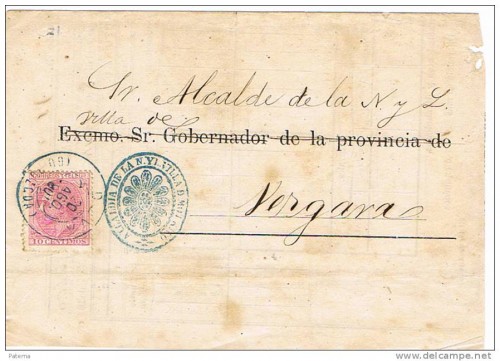 Sr. Alcalde de la N y L.
villa de
Excmo. Sr. Gobernador de la provincia de
Vergara
ALCALDIA DE LA N. Y L. VILLA D
10 CENTIMOS
Paterna
delcampe.net